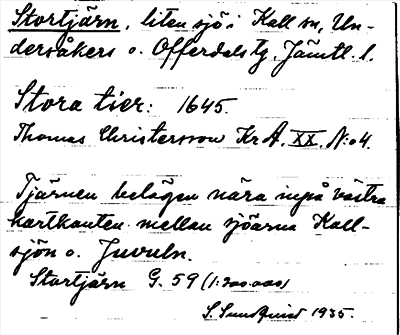 Stortjärn, liten sjö i Kall sn, Un-
dersåkers o. Offerdals tg. Jämtl. l.
Stora tier: 1645.
Thomas Christersson KrA. XX. N:o 4.
Tjärnen belägen nära inpå västra
kartkanten mellan sjöarna Kall-
sjön o. Juvuln.
Stortjärn G. 59 (1:200 000)
S. Sundqvist 1935.